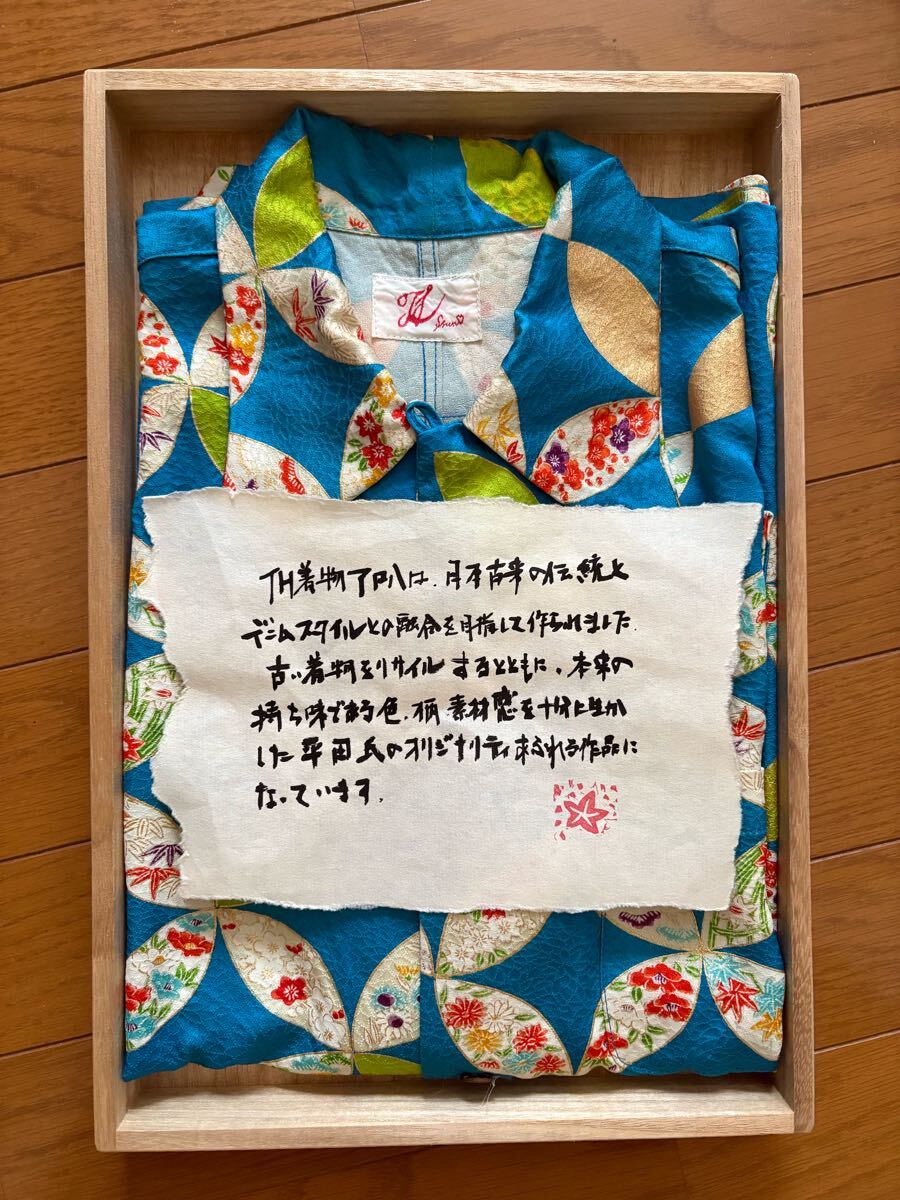 TH
TH着物アロハは、日本古来の伝統と
デニムスタイルとの融合を目指して作られました。
古い着物をリサイルするとともに、本来の
持ち味である色、柄、素材感を十分に生か
した平田氏のオリジナリティあふれる作品に
なっています。